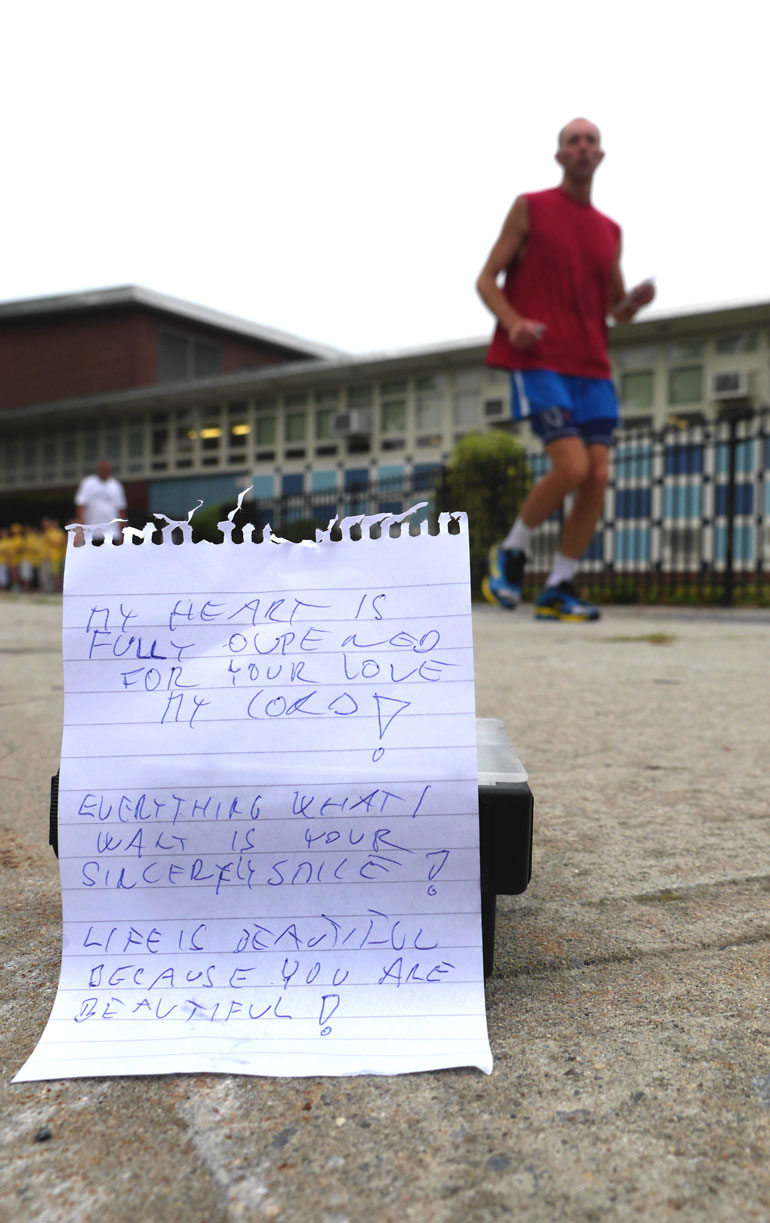 MY HEART IS
FULLY OUPENED
FOR YOUR LOVE
MY LORD!
EVERYTHING WHAT I
WANT IS YOUR
SINCERELY SMILE!
LIFE IS BEAUTIFUL
BECAUSE YOU ARE
BEAUTIFUL!